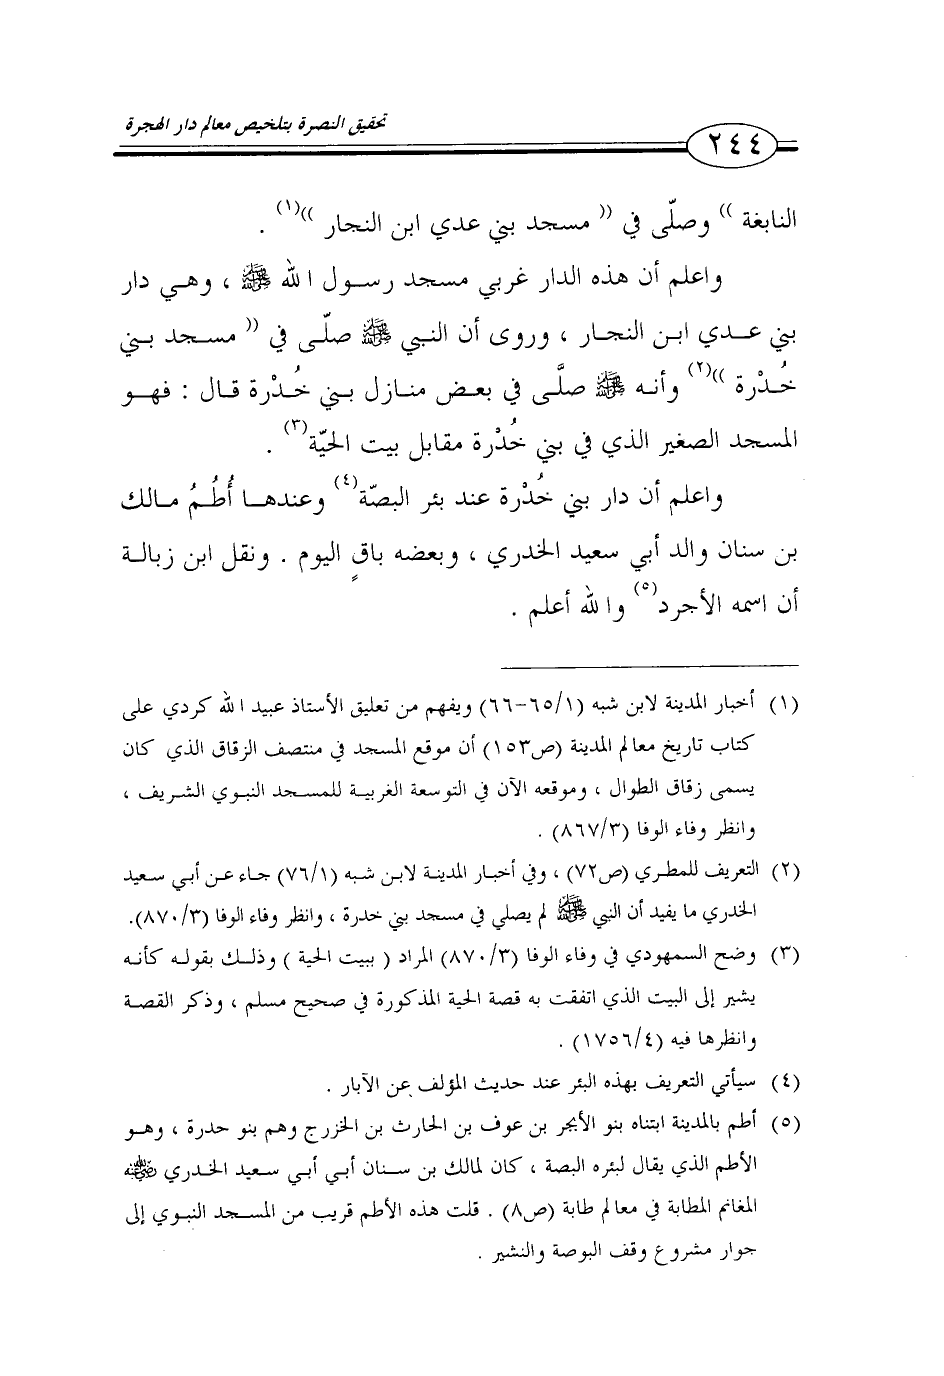 تحقيق النصرة بتلخيص معالم دار الهجرة
٢٤٤
النابغة )) وصلّى في (( مسجد بني عدي ابن النجار ))(١) .
واعلم أن هذه الدار غربي مسجد رسول الله ﷺ ، وهي دار
بني عدي ابن النجار ، وروى أن النبي ﷺ صلّى في (( مسجد بني
خُدْرة ))(٢) وأنه ﷺ صلَّى في بعض منازل بني خُدْرة قال : فهو
المسجد الصغير الذي في بني خُدْرة مقابل بيت الحيّة(٣) .
واعلم أن دار بني خُدْرة عند بئر البصّة(٤) وعندها أُطُمُ مالك
بن سنان والد أبي سعيد الخدري ، وبعضه باقٍ اليوم . ونقل ابن زبالة
أن اسمه الأجرد(٥) والله أعلم .
(١) أخبار المدينة لابن شبه (٦٥/١-٦٦) ويفهم من تعليق الأستاذ عبيد الله كردي على
كتاب تاريخ معالم المدينة (ص١٥٣) أن موقع المسجد في منتصف الزقاق الذي كان
يسمى زقاق الطوال ، وموقعه الآن في التوسعة الغربية للمسجد النبوي الشريف ،
وانظر وفاء الوفا (٨٦٧/٣) .
(٢) التعريف للمطري (ص٧٢) ، وفي أخبار المدينة لابن شبه (٧٦/١) جاء عن أبي سعيد
الخدري ما يفيد أن النبي ﷺ لم يصلي في مسجد بني خدرة ، وانظر وفاء الوفا (٨٧٠/٣).
(٣) وضح السمهودي في وفاء الوفا (٨٧٠/٣) المراد ( ببيت الحية ) وذلك بقوله كأنه
يشير إلى البيت الذي اتفقت به قصة الحية المذكورة في صحيح مسلم ، وذكر القصة
وانظرها فيه (١٧٥٦/٤) .
(٤) سيأتي التعريف بهذه البئر عند حديث المؤلف عن الآبار .
(٥) أطم بالمدينة ابتناه بنو الأبجر بن عوف بن الحارث بن الخزرج وهم بنو حدرة ، وهو
الأطم الذي يقال لبئره البصة ، كان لمالك بن سنان أبي أبي سعيد الخدري رضي الله عنه
المغانم المطابة في معالم طابة (ص٨) . قلت هذه الأطم قريب من المسجد النبوي إلى
جوار مشروع وقف البوصة والنشير .